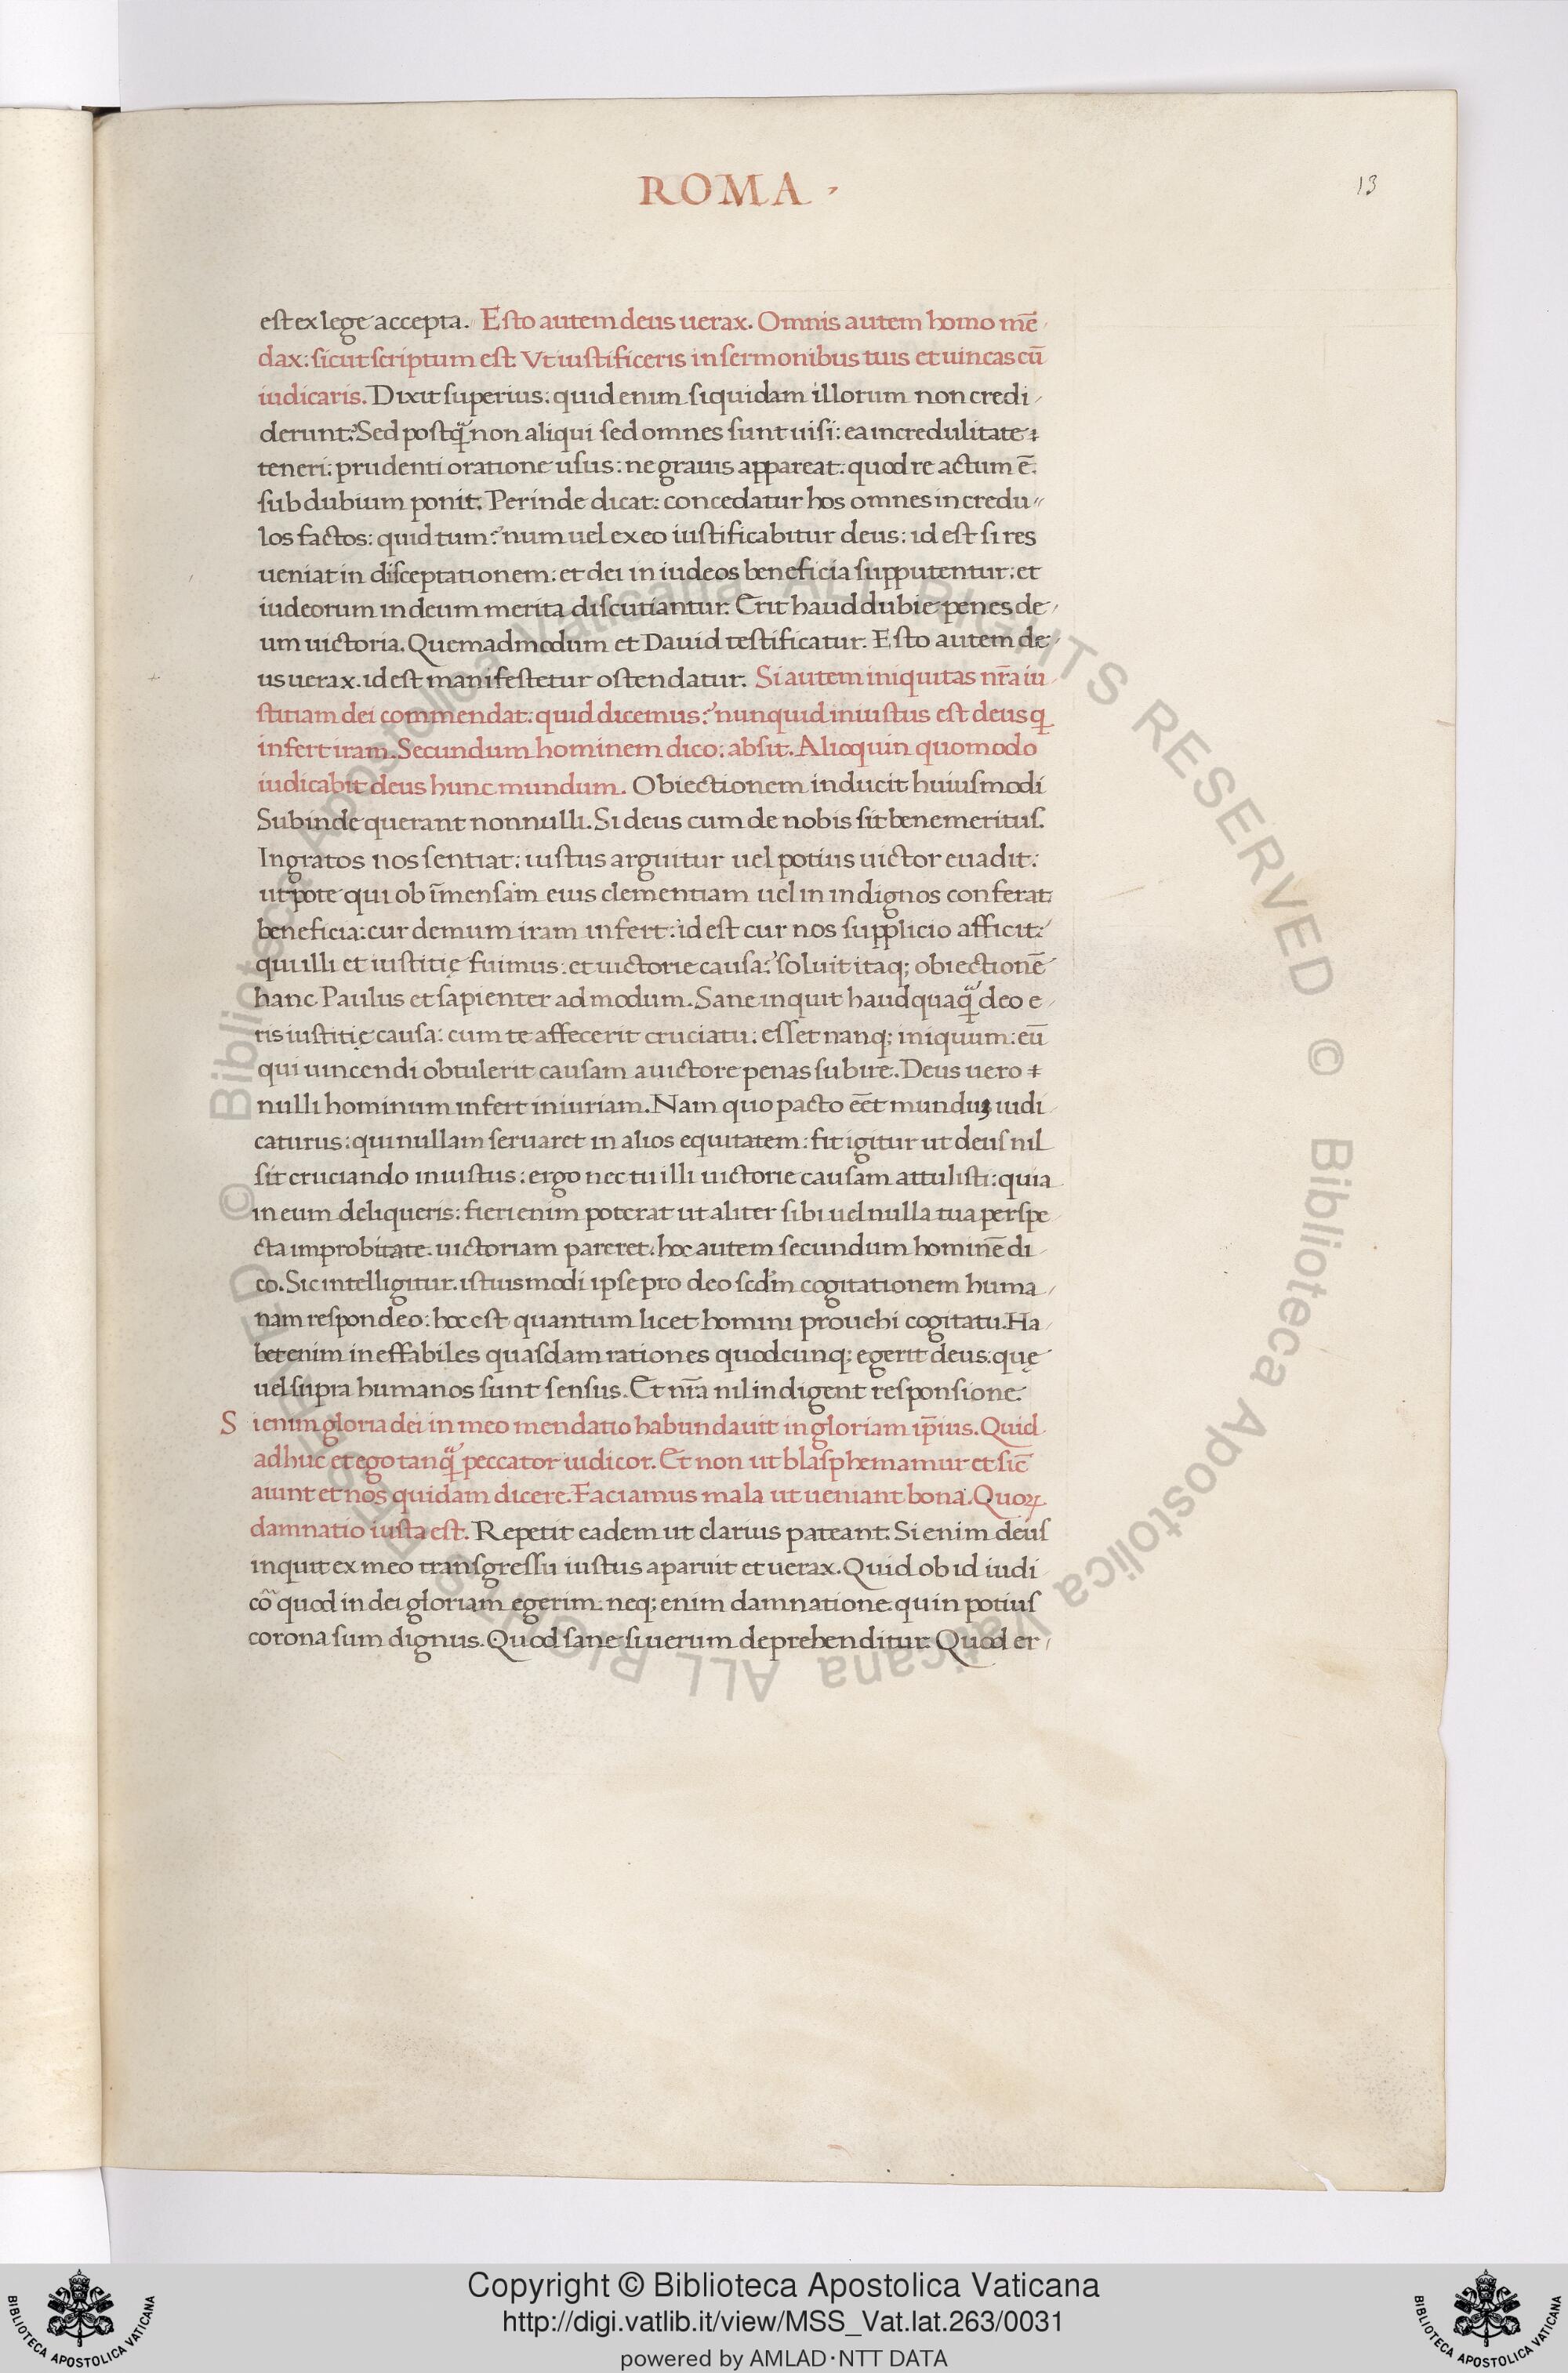 ROMA
13
est ex lege accepta. Esto autem deus uerax. Omnis autem homo mẽ
dax: sicut scriptum est. Vt iustificeris in sermonibus tuis et uincas cũ
iudicaris. Dixit superius: quid enim si quidam illorum non credi
derunt? Sed postq̃ non aliqui sed omnes sunt uisi: ea incredulitate
teneri: prudenti oratione usus: ne grauis appareat: quod re actum ē.
sub dubium ponit. Perinde dicat: concedatur hos omnes incredu
los factos: quid tum? num uel ex eo iustificabitur deus: id est si res
ueniat in disceptationem: et dei in iudeos beneficia supputentur: et
iudeorum in deum merita discutiantur. Erit haud dubie penes de
um uictoria. Quemadmodum et Dauid testificatur. Esto autem de
us uerax. id est manifestetur ostendatur. Si autem iniquitas nr̃a iu
stitiam dei commendat: quid dicemus? nunquid iniustus est deus q
infert iram. Secundum hominem dico: absit. Alioquin quomodo
iudicabit deus hunc mundum. Obiectionem inducit huiusmodi
Subinde querant nonnulli. Si deus cum de nobis sit benemeritus.
Ingratos nos sentiat: iustus arguitur uel potius uictor euadit:
utpote qui ob im̃ensam eius clementiam uel in indignos conferat
beneficia: cur demum iram infert: id est cur nos supplicio afficit:
qui illi et iustitię fuimus: et uictorie causa? soluit itaq; obiectionẽ
hanc Paulus et sapienter admodum. Sane inquit haudquaq̃ deo e
ris iustitię causa: cum te affecerit cruciatu: esset nanq; iniquum: eũ
qui uincendi obtulerit causam a uictore penas subire. Deus uero
nulli hominum infert iniuriam. Nam quo pacto eẽt munduȝ iudi
caturus: qui nullam seruaret in alios equitatem: fit igitur ut deus nil
sit cruciando iniustus: ergo nec tu illi uictorie causam attulisti: quia
in eum deliqueris: fieri enim poterat ut aliter sibi uel nulla tua perspe
cta improbitate. uictoriam pareret. hoc autem secundum hominẽ di
co. Sic intelligitur. istiusmodi ipse pro deo scďm cogitationem huma
nam respondeo: hoc est quantum licet homini prouehi cogitatu. Ha
bet enim ineffabiles quasdam rationes quodcunq; egerit deus. quę
uel supra humanos sunt sensus. Et nr̃a nil indigent responsione.
Si enim gloria dei in meo mendatio habundauit in gloriam ip̃ius. Quid
adhuc et ego tanq̃ peccator iudicor. Et non ut blasphemamur et sic̃
aiunt et nos quidam dicere. Faciamus mala ut ueniant bona. Quoꝝ
damnatio iusta est. Repetit eadem ut clarius pateant. Si enim deus
inquit ex meo transgressu iustus aparuit et uerax. Quid ob id iudi
cor̃ quod in dei gloriam egerim. neq; enim damnatione. quin potius
corona sum dignus. Quod sane si uerum deprehenditur. Quod er
© Biblioteca Apostolica Vaticana ALL RIGHTS RESERVED © Biblioteca Apostolica Vaticana ALL RIGHTS RESERVED
Copyright © Biblioteca Apostolica Vaticana
http://digi.vatlib.it/view/MSS_Vat.lat.263/0031
powered by AMLAD·NTT DATA
BIBLIOTECA APOSTOLICA VATICANA
BIBLIOTECA APOSTOLICA VATICANA